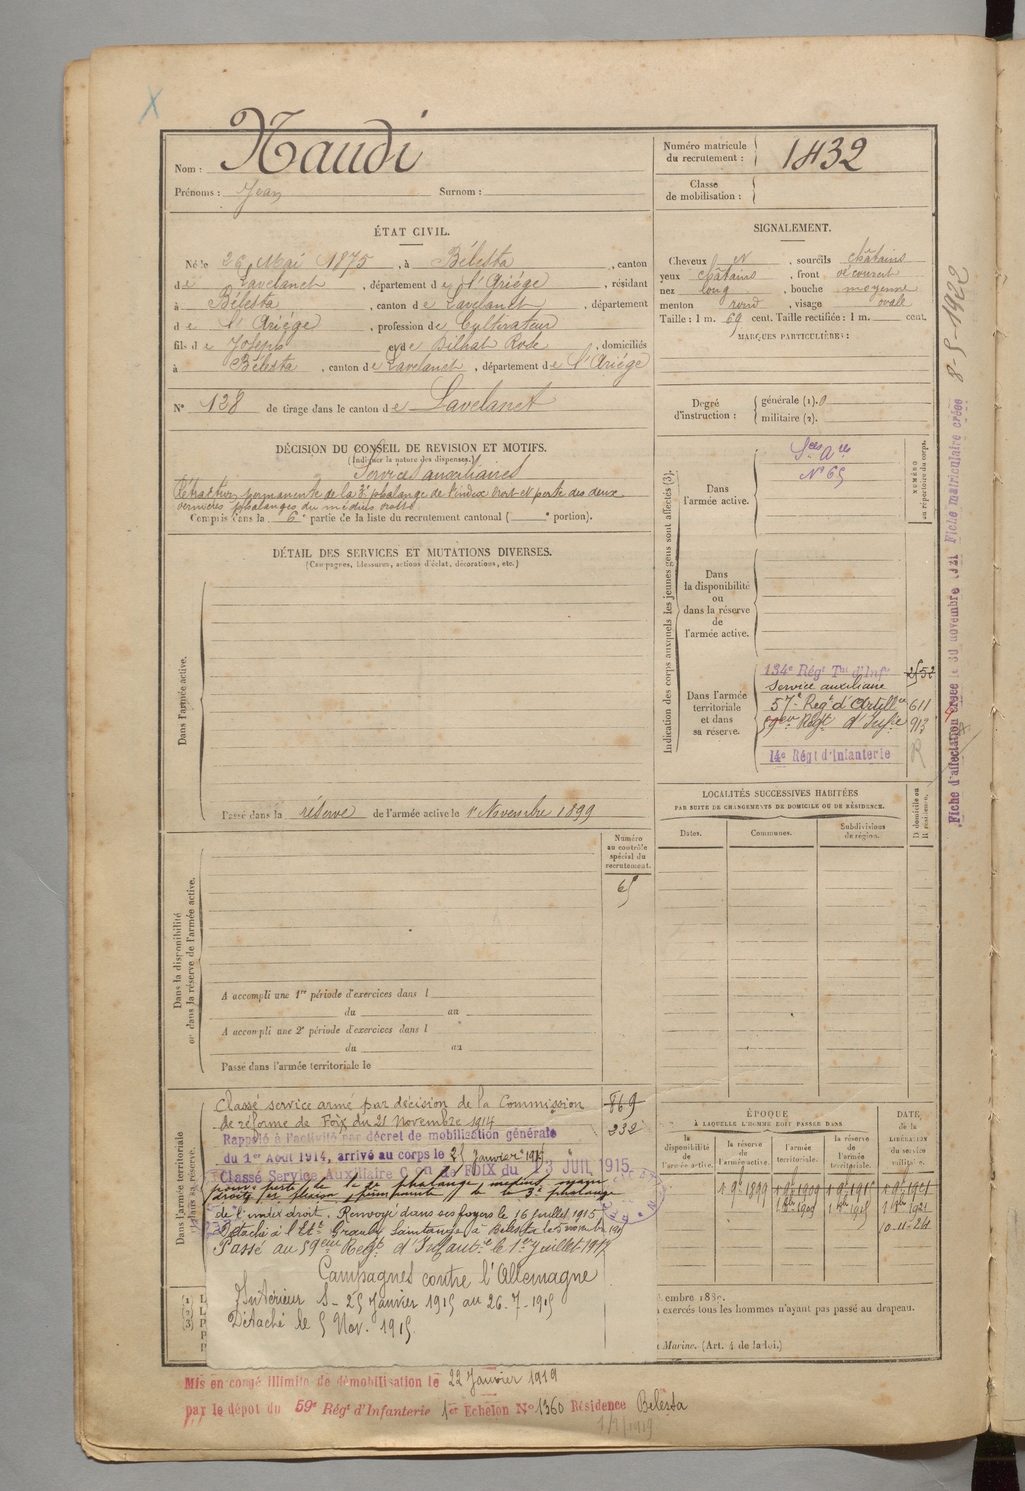 Naudi
Nom :
Prénoms : Jean Surnom :
Numéro matricule
du recrutement : 1432
Classe
de mobilisation :
ÉTAT CIVIL.
Né le 26 Mai 1875, à Bélesta, canton
de Lavelanet, département de l'Ariége, résidant
à Bélesta, canton de Lavelanet, département
de l'Ariége, profession de Cultivateur
fils de Joseph et de Bilhat Rose, domiciliés
à Bélesta, canton de Lavelanet, département de l'Ariége
N° 128 de tirage dans le canton de Lavelanet
SIGNALEMENT.
Cheveux N, sourcils châtains
yeux châtains, front découvert
nez long, bouche moyenne
menton rond, visage ovale
Taille : 1 m. 69 cent. Taille rectifiée : 1 m. cent.
MARQUES PARTICULIÈRES :
Degré
d'instruction :
générale (1). 0
militaire (2).
DÉCISION DU CONSEIL DE REVISION ET MOTIFS.
(Indiquer la nature des dispenses.)
Services auxiliaires
Rétraction permanente de la 3e phalange de l'index droit et perte des deux
dernières phalanges du médius droit
Compris dans la 6e partie de la liste du recrutement cantonal ( e portion).
DÉTAIL DES SERVICES ET MUTATIONS DIVERSES.
(Campagnes, blessures, actions d'éclat, décorations, etc.)
Dans l'armée active.
Passé dans la réserve de l'armée active le 1er Novembre 1899
Indication des corps auxquels les jeunes gens sont affectés (3).
Dans
l'armée active.
Sces Ares
N° 65
NUMÉRO
au répertoire du corps.
Dans
la disponibilité
ou
dans la réserve
de
l'armée active.
Dans l'armée
territoriale
et dans
sa réserve.
134e Régt Tal d'Infie 2552
Service auxiliaire
57e Regt d'Artillie 611
59eme Regt d'Infie 913
14e Régt d'Infanterie R
LOCALITÉS SUCCESSIVES HABITÉES
PAR SUITE DE CHANGEMENTS DE DOMICILE OU DE RÉSIDENCE.
Dates.
Communes.
Subdivisions
de région.
D domicile ou
R résidence.
Numéro
au contrôle
spécial du
recrutement.
65
Dans la disponibilité
ou dans la réserve de l'armée active.
A accompli une 1re période d'exercices dans l
du au
A accompli une 2e période d'exercices dans l
du au
Passé dans l'armée territoriale le
Dans l'armée territoriale
et dans sa réserve.
Classé service armé par décision de la Commission 869
de réforme de Foix du 21 Novembre 1914 232
Rappelé à l'activité par décret de mobilisation générale
du 1er Août 1914, arrivé au corps le 25 Janvier 1915
Classé Service Auxiliaire Con de FOIX du 13 JUIL 1915
pour perte de la 2e phalange médius main
droite et flexion permanente de la 3e phalange
de l'index droit. Renvoyé dans ses foyers le 16 Juillet 1915
Détaché à l'Ett à Bélesta le 5 novembre 1915
Passé au 59eme Regt d'Infantie le 1er Juillet 1917
Campagnes contre l'Allemagne
Intérieur S - 25 Janvier 1915 au 26-7-1915
Détaché le 5 Nov. 1915
ÉPOQUE
À LAQUELLE L'HOMME DOIT PASSER DANS
la
disponibilité
de
l'armée active.
la réserve
de
l'armée active.
l'armée
territoriale.
la réserve
de
l'armée
territoriale.
DATE
de la
LIBÉRATION
du service
militaire.
1 9bre 1899
1 9bre 1909
1 9bre 1915
1 9bre 1921
10-11-24
exercés tous les hommes n'ayant pas passé au drapeau.
Marine. (Art. 4 de la loi.)
Mis en congé illimité de démobilisation le 22 Janvier 1919
par le dépôt du 59e Régt d'Infanterie 1er Echelon N° 1360 Résidence Bélesta
Fiche d'affectation créée le 30 novembre 1921 Fiche matriculaire créée 8-5-1922